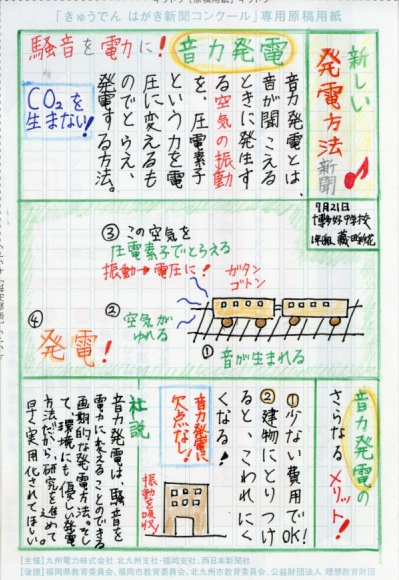 「きゅうでん はがき新聞コンクール」専用原稿用紙
新しい
発電方法
新聞
9月21日
騒音を電力に!
音力発電
音力発電とは、
音が聞こえる
ときに発生す
る空気の振動
を、圧電素子
という力を電
圧に変えるも
のでとらえ、
発電する方法。
CO₂を
生まない!
③ この空気を
圧電素子でとらえる
振動→電圧に!
ガタン
ゴトン
② 空気が
ゆれる
① 音が生まれる
④
発電!
音力発電の
さらなる
メリット!
①少ない費用でOK!
②建物にとりつけ
ると、こわれにく
くなる!
音力発電に
欠点なし!
振動を吸収!
社説
音力発電は、騒音を
電力に変えることのできる
画期的な発電方法。そし
て、環境にも優しい発電
方法だから、研究を進めて、
早く実用化されてほしい
[主催]九州電力株式会社 北九州支社・福岡支社、西日本新聞社
[後援]福岡県教育委員会、福岡市教育委員会、北九州市教育委員会、公益財団法人 理想教育財団